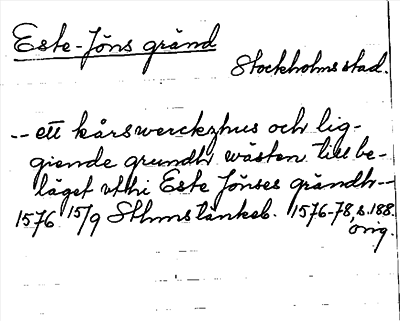 Este-Jöns gränd
Stockholms stad.
-- ett kårswerckzhus och lig-
giende grundh wästen till be-
läget vthi Este Jönses grändh--
1576 15/9 Sthms tänkeb. 1576-78, s. 188.
orig.